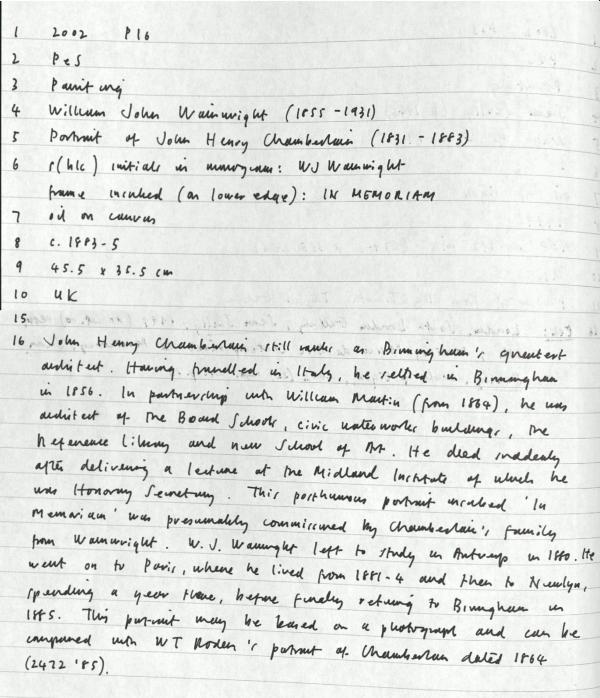 1 2002 P16
2 P+S
3 Painting
4 William John Wainwright (1855-1931)
5 Portrait of John Henry Chamberlain (1831-1883)
6 s(hlc) initials in monogram: WJ Wainwright
frame inscribed (on lower edge): IN MEMORIAM
7 oil on canvas
8 c. 1883-5
9 45.5 x 35.5 cm
10 UK
15
16 John Henry Chamberlain still ranks as Birmingham's greatest
architect. Having travelled in Italy, he settled in Birmingham
in 1856. In partnership with William Martin (from 1864), he was
architect of the Board Schools, civic waterworks buildings, the
Reference Library and new School of Art. He died suddenly
after delivering a lecture at the Midland Institute of which he
was Honorary Secretary. This posthumous portrait inscribed 'In
Memoriam' was presumably commissioned by Chamberlain's family
from Wainwright. W.J. Wainwright left to study in Antwerp in 1880. He
went on to Paris, where he lived from 1881-4 and then to Newlyn,
spending a year there, before finally returning to Birmingham in
1885. This portrait may be based on a photograph and can be
compared with WT Roden's portrait of Chamberlain dated 1864
(2472 '85).